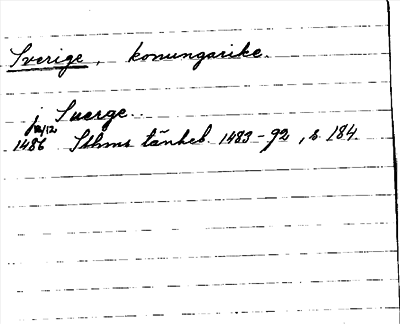 Sverige, konungarike.
j Suerge..
12/12
1486 Sthms tänkeb. 1483-92, s. 184.